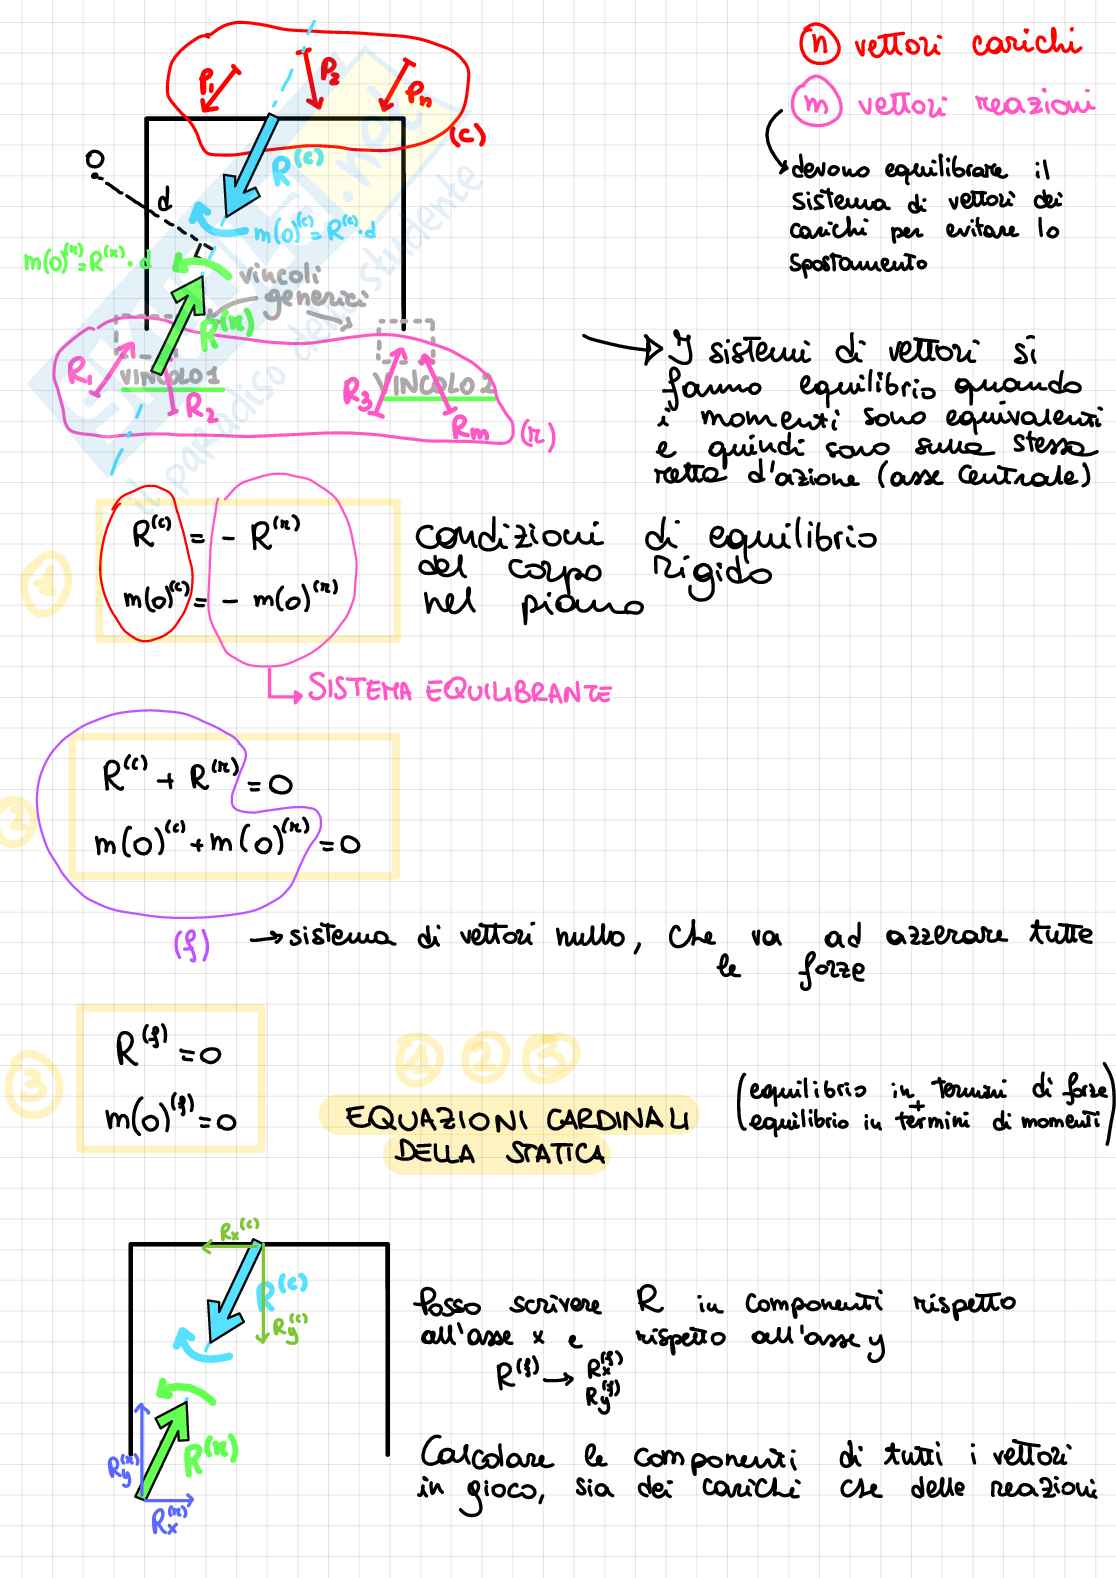 n vettori carichi
m vettori reazioni
devono equilibrare il
sistema di vettori dei
carichi per evitare lo
spostamento
P1
P2
Pn
(c)
O
d
R(c)
m(0)(c)=R(c)·d
m(0)(r)=R(r)·d
vincoli
generici
R(r)
VINCOLO 1
VINCOLO 2
R1
R2
R3
Rm
(r)
I sistemi di vettori si
fanno equilibrio quando
i momenti sono equivalenti
e quindi sono sulla stessa
retta d'azione (asse centrale)
1
R(c) = - R(r)
m(0)(c) = - m(0)(r)
condizioni di equilibrio
del corpo rigido
nel piano
SISTEMA EQUILIBRANTE
2
R(c) + R(r) = 0
m(0)(c) + m(0)(r) = 0
(f) → sistema di vettori nullo, che va ad azzerare tutte
le forze
3
R(f) = 0
m(0)(f) = 0
1 2 3
EQUAZIONI CARDINALI
DELLA STATICA
(equilibrio in termini di forze
+
equilibrio in termini di momenti)
Rx(c)
R(c)
Ry(c)
R(r)
Ry(r)
Rx(r)
Posso scrivere R in componenti rispetto
all'asse x e rispetto all'asse y
R(f) → Rx(f)
Ry(f)
Calcolare le componenti di tutti i vettori
in gioco, sia dei carichi che delle reazioni